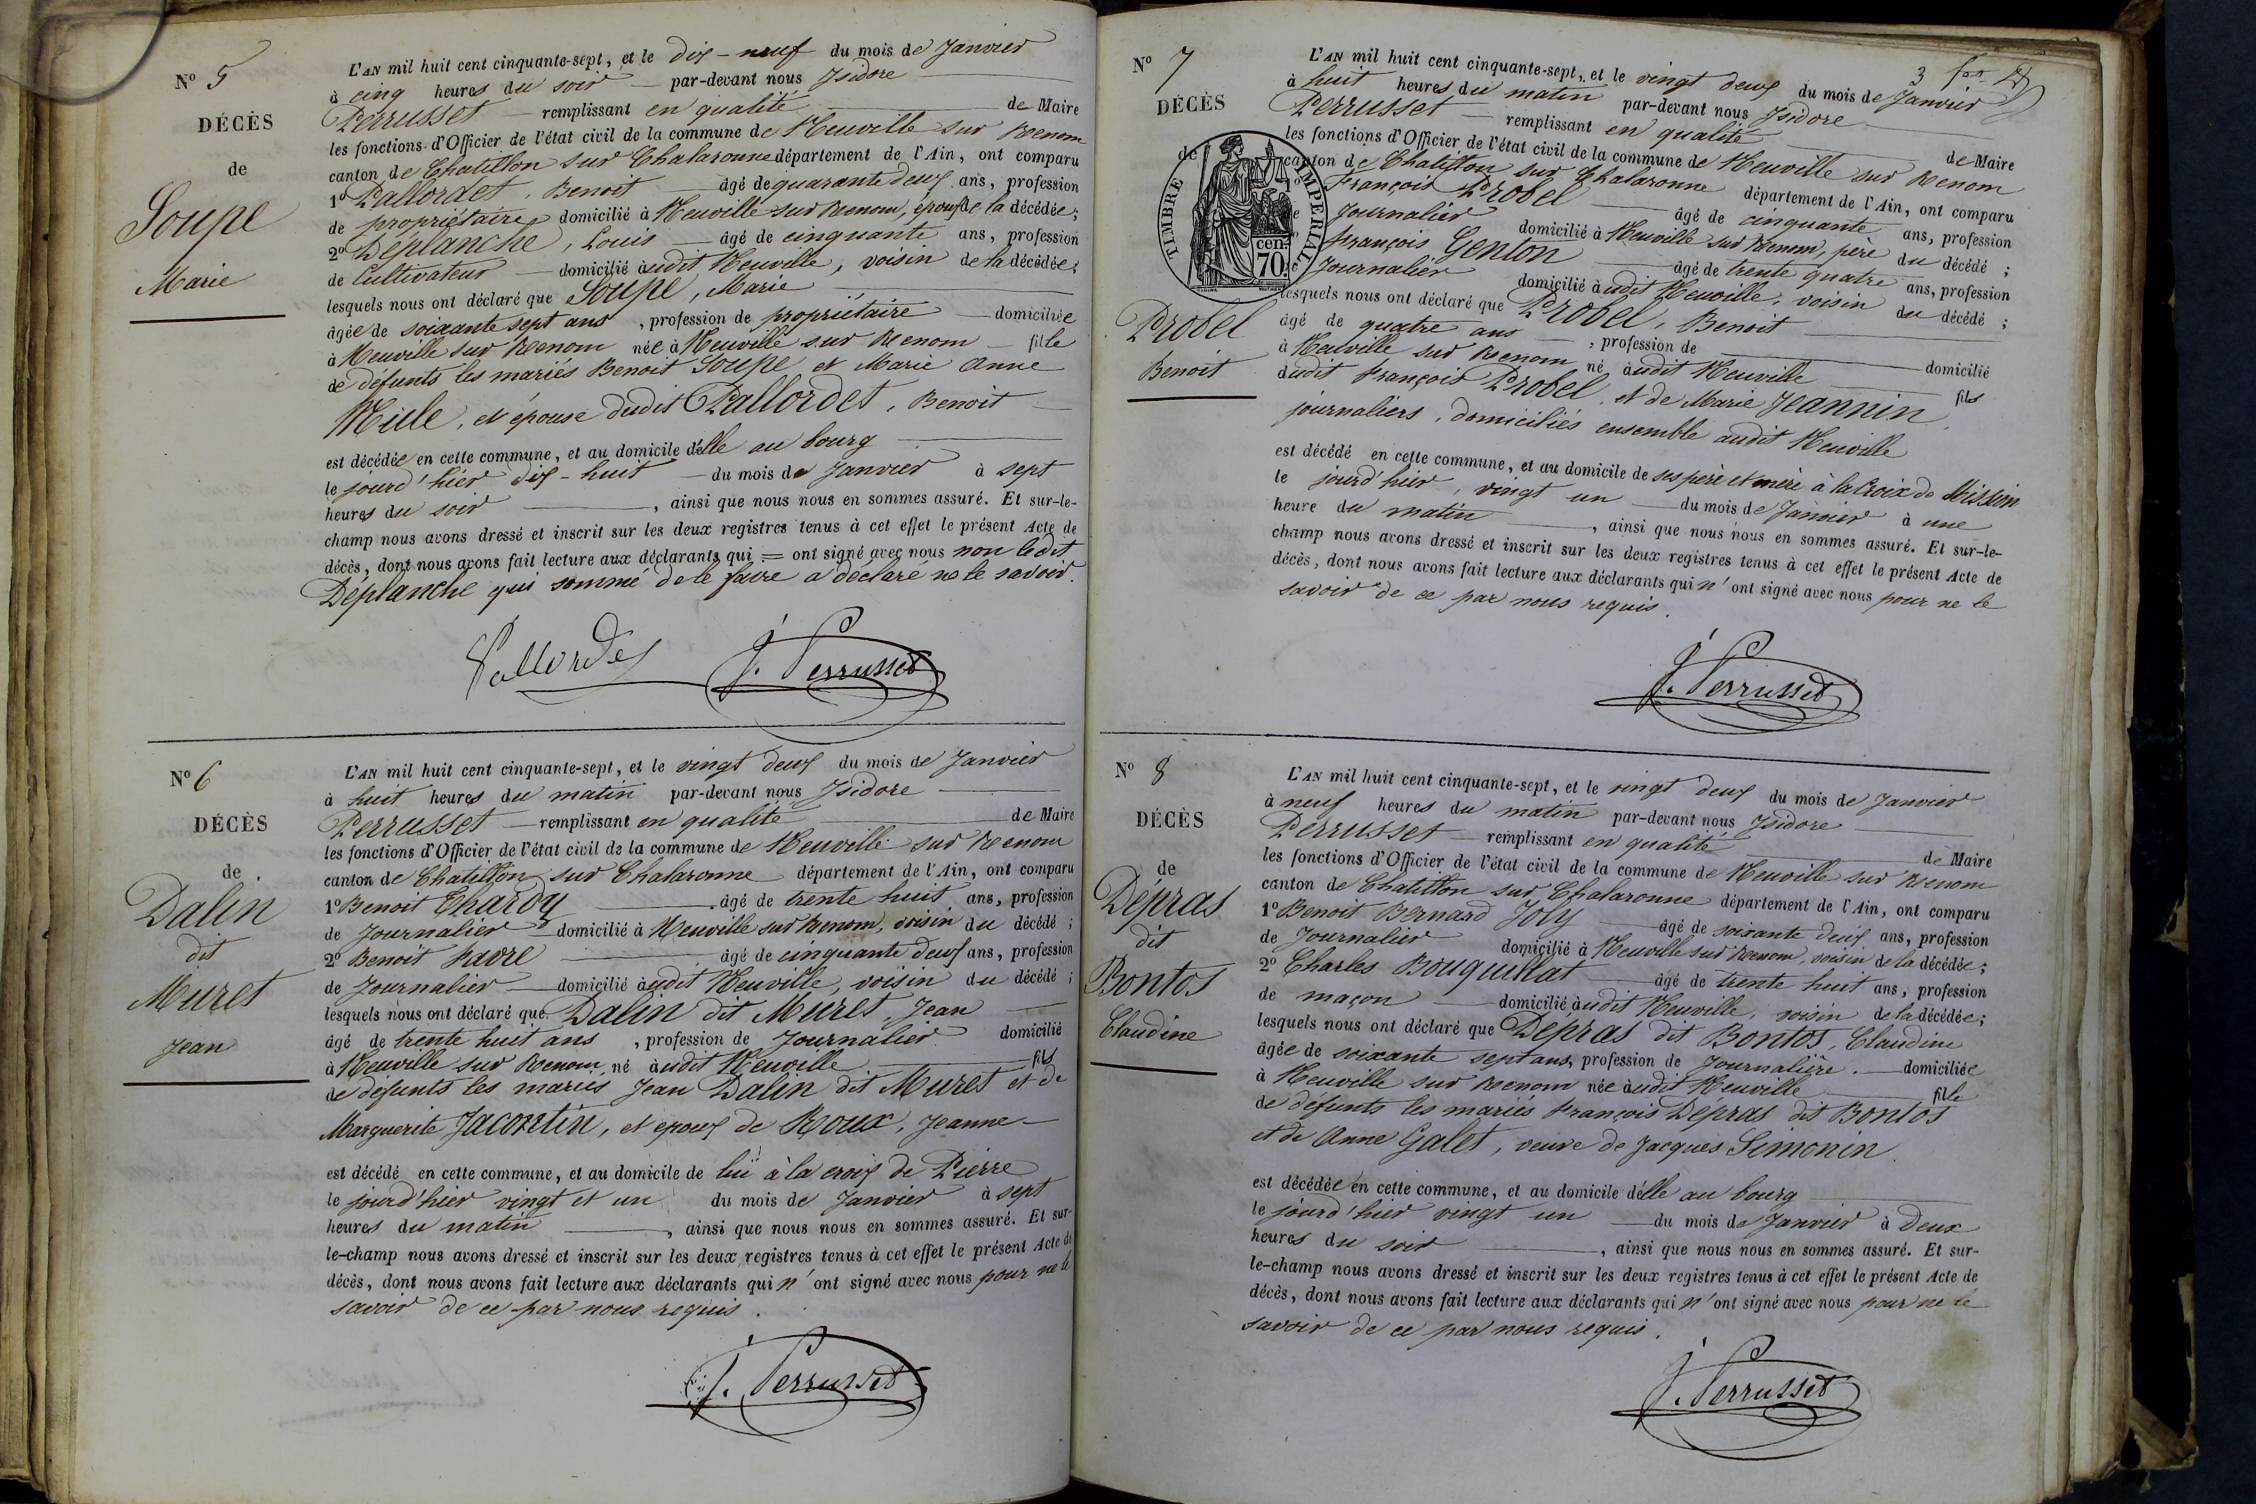 N° 5
DÉCÈS
de
Soupe
Marie
L'AN mil huit cent cinquante-sept, et le dix-neuf du mois de Janvier
à cinq heures du soir par-devant nous Isidore
Perrusset remplissant en qualité de Maire
les fonctions d'Officier de l'état civil de la commune de Neuville sur Renom
canton de Chatillon sur Chalaronne département de l'Ain, ont comparu
1° Pallordet, Benoit âgé de quarante deux ans, profession
de propriétaire domicilié à Neuville sur Renom, époux de la décédée;
2° Déplanche, Louis âgé de cinquante ans, profession
de Cultivateur domicilié àudit Neuville, voisin de la décédée;
lesquels nous ont déclaré que Soupe, Marie
âgée de soixante sept ans, profession de propriétaire domiciliée
à Neuville sur Renom née à Neuville sur Renom fille
de défunts les mariés Benoit Soupe et Marie Anne
Miele, et épouse dudit Pallordet, Benoit
est décédée en cette commune, et au domicile d'élle au bourg
le jourd'hier dix-huit du mois de Janvier à sept
heures du soir, ainsi que nous nous en sommes assuré. Et sur-le-
champ nous avons dressé et inscrit sur les deux registres tenus à cet effet le présent Acte de
décès, dont nous avons fait lecture aux déclarants qui = ont signé avec nous non ledit
Déplanche qui sommé de le faire a déclaré ne le savoir.
Pallordet J. Perrusset
N° 6
DÉCÈS
de
Dalin
dit
Muret
Jean
L'AN mil huit cent cinquante-sept, et le vingt deux du mois de Janvier
à huit heures du matin par-devant nous Isidore
Perrusset remplissant en qualité de Maire
les fonctions d'Officier de l'état civil de la commune de Neuville sur Renom
canton de Chatillon sur Chalaronne département de l'Ain, ont comparu
1° Benoit Chardy âgé de trente huit ans, profession
de Journalier domicilié à Neuville sur Renom, voisin du décédé;
2° Benoit havre âgé de cinquante deux ans, profession
de Journalier domicilié àudit Neuville, voisin du décédé;
lesquels nous ont déclaré que Dalin dit Muret, Jean
âgé de trente huit ans, profession de Journalier domicilié
à Neuville sur Renom, né àudit Neuville fils
de défunts les mariés Jean Dalin dit Muret et de
Marguerite Jacontin, et époux de Roux, Jeanne
est décédé en cette commune, et au domicile de lui à la croix de Pierre
le jourd'hier vingt et un du mois de Janvier à sept
heures du matin, ainsi que nous nous en sommes assuré. Et sur-
le-champ nous avons dressé et inscrit sur les deux registres tenus à cet effet le présent Acte de
décès, dont nous avons fait lecture aux déclarants qui n'ont signé avec nous pour ne le
savoir de ce par nous requis.
J. Perrusset
3
N° 7
DÉCÈS
de
TIMBRE IMPERIAL
cen. 70.
Probel
Benoit
L'AN mil huit cent cinquante-sept, et le vingt deux du mois de Janvier
à huit heures du matin par-devant nous Isidore
Perrusset remplissant en qualité de Maire
les fonctions d'Officier de l'état civil de la commune de Neuville sur Renom
canton de Chatillon sur Chalaronne département de l'Ain, ont comparu
François Probel âgé de cinquante ans, profession
Journalier domicilié à Neuville sur Renom, père du décédé;
François Genton âgé de trente quatre ans, profession
Journalier domicilié àudit Neuville, voisin du décédé;
lesquels nous ont déclaré que Probel, Benoit
âgé de quatre ans, profession de domicilié
à Neuville sur Renom né àudit Neuville fils
dudit François Probel, et de Marie Jeannin,
journaliers, domiciliés ensemble audit Neuville
est décédé en cette commune, et au domicile de ses père et mère à la Croix de Mission
le jourd'hier, vingt un du mois de Janvier à une
heure du matin, ainsi que nous nous en sommes assuré. Et sur-le-
champ nous avons dressé et inscrit sur les deux registres tenus à cet effet le présent Acte de
décès, dont nous avons fait lecture aux déclarants qui n'ont signé avec nous pour ne le
savoir de ce par nous requis.
J. Perrusset
N° 8
DÉCÈS
de
Dépras
dit
Bontos
Claudine
L'AN mil huit cent cinquante-sept, et le vingt deux du mois de Janvier
à neuf heures du matin par-devant nous Isidore
Perrusset remplissant en qualité de Maire
les fonctions d'Officier de l'état civil de la commune de Neuville sur Renom
canton de Chatillon sur Chalaronne département de l'Ain, ont comparu
1° Benoit Bernard Joly âgé de soixante deux ans, profession
de Journalier domicilié à Neuville sur Renom, voisin de la décédée;
2° Charles Bouquillat âgé de trente huit ans, profession
de maçon domicilié àudit Neuville, voisin de la décédée;
lesquels nous ont déclaré que Dépras dit Bontos, Claudine
âgée de soixante sept ans, profession de Journalière. domiciliée
à Neuville sur Renom née àudit Neuville fille
de défunts les mariés François Dépras dit Bontos
et de Anne Galet, veuve de Jacques Simonin.
est décédée en cette commune, et au domicile d'élle au bourg
le jourd'hier vingt un du mois de Janvier à Deux
heures du soir, ainsi que nous nous en sommes assuré. Et sur-
le-champ nous avons dressé et inscrit sur les deux registres tenus à cet effet le présent Acte de
décès, dont nous avons fait lecture aux déclarants qui n'ont signé avec nous pour ne le
savoir de ce par nous requis.
J. Perrusset